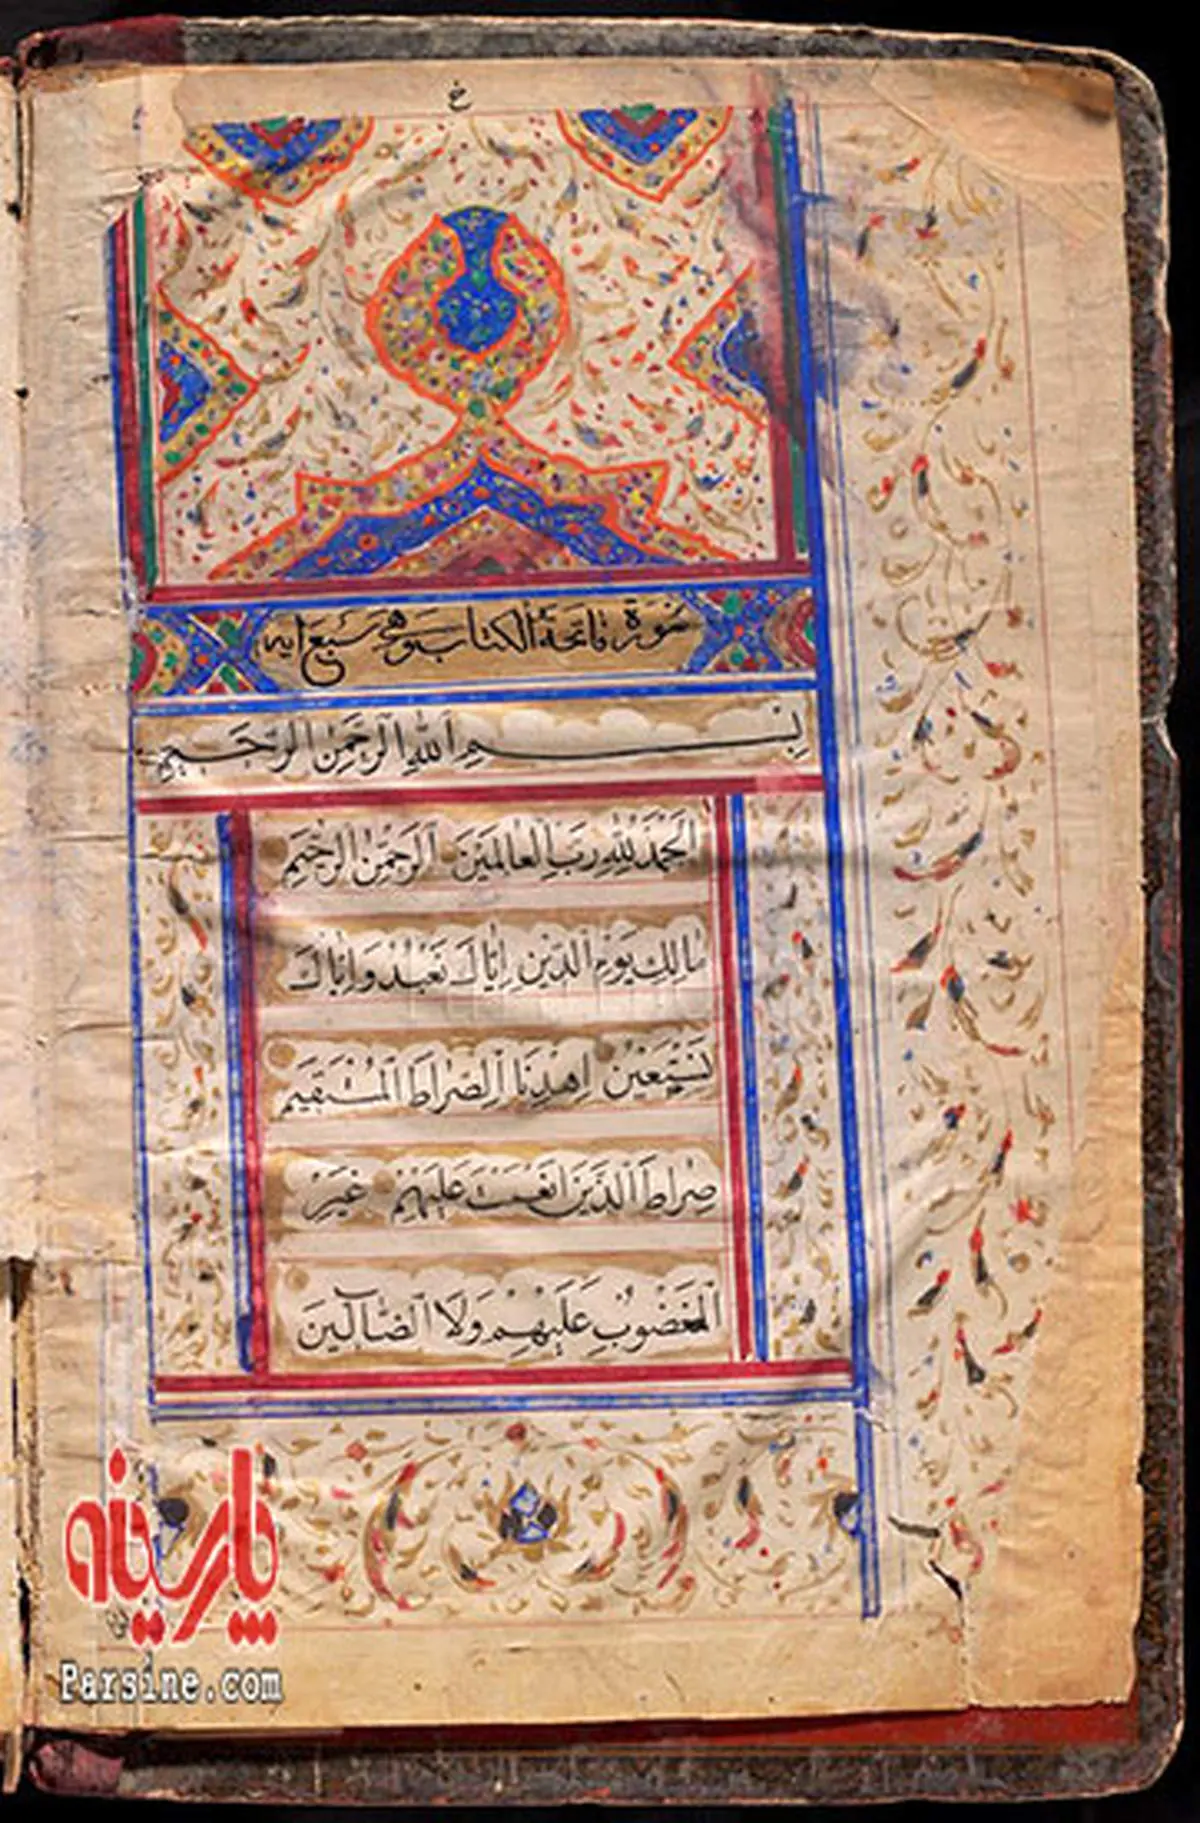 سورة فاتحة الكتاب وهي سبع ايه
بِسْمِ اللهِ الرَّحْمٰنِ الرَّحِيمِ
اَلْحَمْدُ لِلّٰهِ رَبِّ الْعَالَمِينَ اَلرَّحْمٰنِ الرَّحِيمِ
مَالِكِ يَوْمِ الدِّينِ اِيَّاكَ نَعْبُدُ وَاِيَّاكَ
نَسْتَعِينُ اِهْدِنَا الصِّرَاطَ الْمُسْتَقِيمَ
صِرَاطَ الَّذِينَ اَنْعَمْتَ عَلَيْهِمْ غَيْرِ
الْمَغْضُوبِ عَلَيْهِمْ وَلَا الضَّالِّينَ
پارسینه
Parsine.com